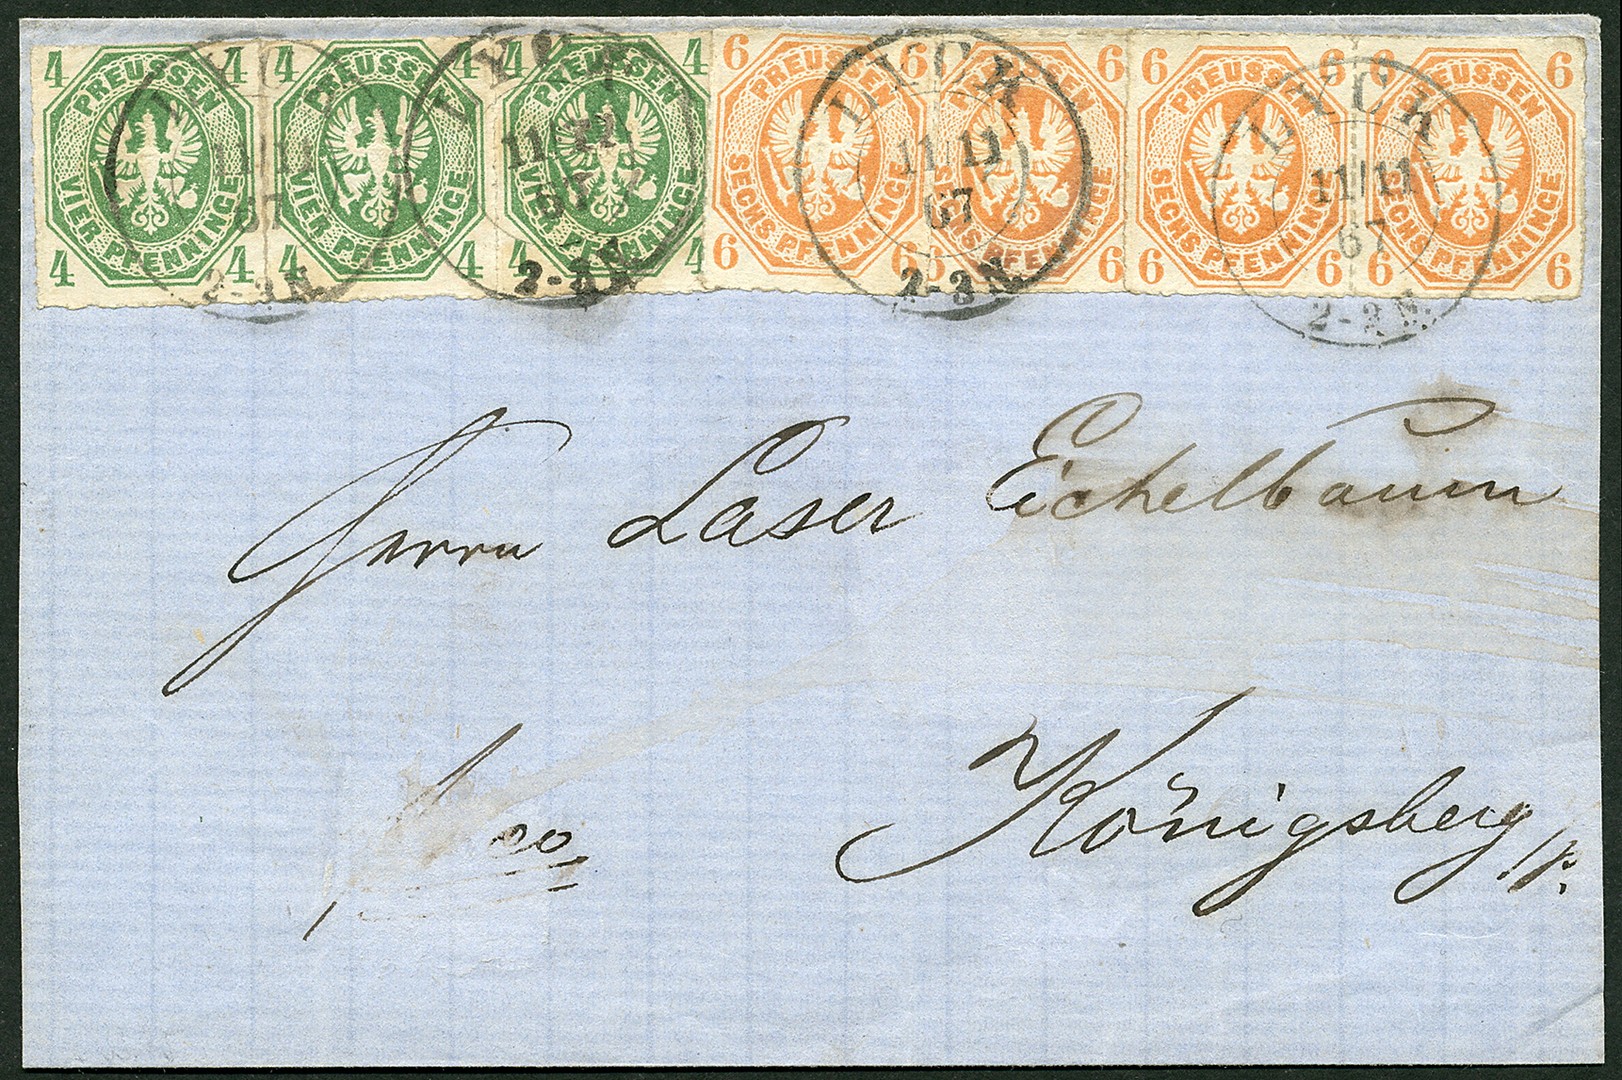 4 4 PREUSSEN VIER PFENNINGE 4 4
4 4 PREUSSEN VIER PFENNINGE 4 4
4 4 PREUSSEN VIER PFENNINGE 4 4
6 6 PREUSSEN SECHS PFENNINGE 6 6
6 PREUSSEN SECHS PFENNINGE 6 6
6 6 PREUSSEN SECHS PFENNINGE 6 6
6 6 PREUSSEN SECHS PFENNINGE 6 6
LYCK 11/11 67 2-3N.
LYCK 11/11 67 2-3N.
LYCK 11/11 67 2-3N.
LYCK 11/11 67 2-3N.
Herrn Laser Eichelbaum
Königsberg i/P.